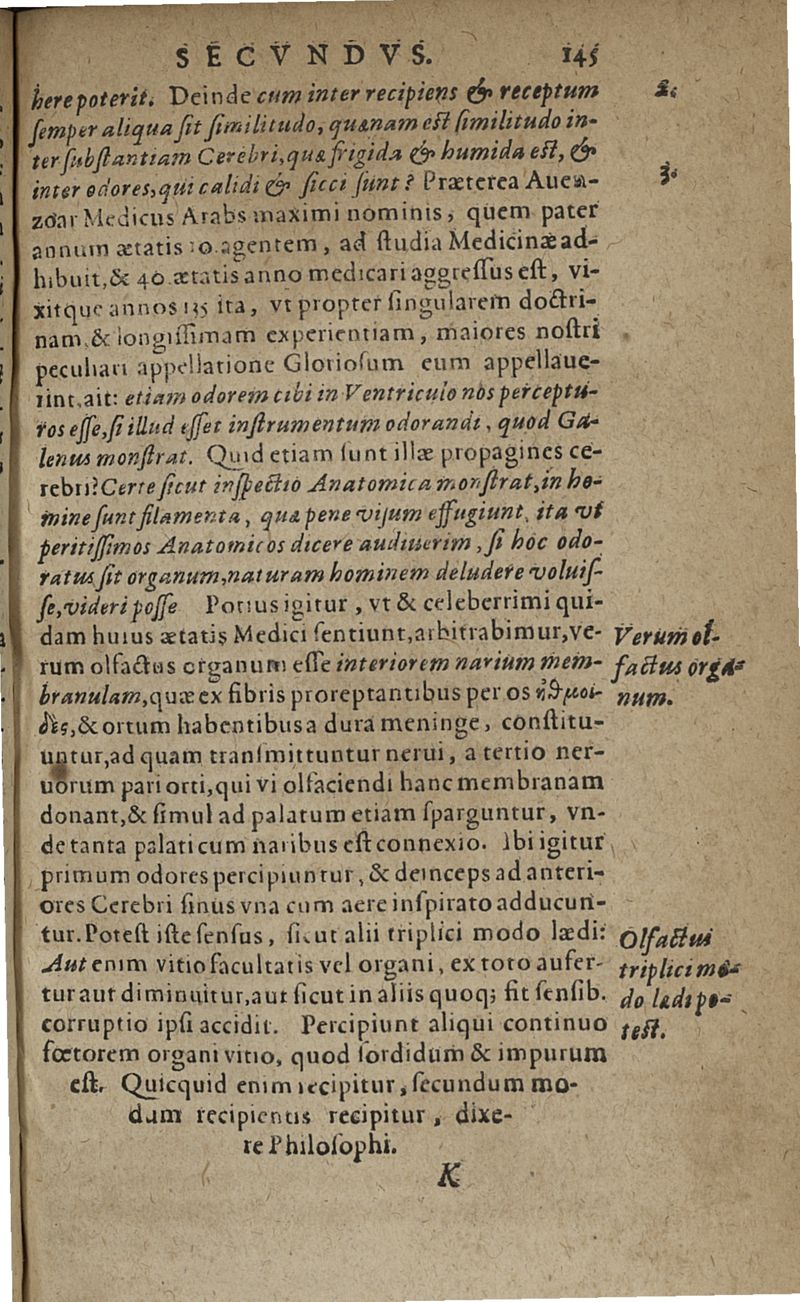 SECVNDVS. 145
here poterit. Deinde cum inter recipiens & receptum
ſemper aliqua ſit ſimilitudo, quænam eſt ſimilitudo in-
ter ſubſtantiam Cerebri, quæ frigida & humida eſt, &
inter odores, qui calidi & ſicci ſunt? Præterea Auen-
zoar Medicus Arabs maximi nominis, quem pater
annum ætatis 10. agentem, ad ſtudia Medicinæ ad-
hibuit, & 40. ætatis anno medicari aggreſſus eſt, vi-
xitque annos 135 ita, vt propter ſingularem doctri-
nam, & longiſſimam experientiam, maiores noſtri
peculiari appellatione Glorioſum eum appellaue-
rint, ait: etiam odorem cibi in Ventriculo nos perceptu-
ros eſſe, ſi illud eſſet inſtrumentum odorandi, quod Ga-
lenus monſtrat. Quid etiam ſunt illæ propagines ce-
rebri? Certe ſicut inſpectio Anatomica monſtrat, in ho-
mine ſunt filamenta, quæ pene viſum effugiunt, ita vt
peritiſſimos Anatomicos dicere audiuerim, ſi hoc odo-
ratus ſit organum, naturam hominem deludere voluiſ-
ſe, videri poſſe Potius igitur, vt & celeberrimi qui-
dam huius ætatis Medici ſentiunt, arbitrabimur, ve-
rum olfactus organum eſſe interiorem narium mem-
branulam, quæ ex fibris proreptantibus per os ἠθμοι-
δὲς, & ortum habentibus a dura meninge, conſtitu-
untur, ad quam tranſmittuntur nerui, a tertio ner-
uorum pari orti, qui vi olfaciendi hanc membranam
donant, & ſimul ad palatum etiam ſparguntur, vn-
de tanta palati cum naribus eſt connexio. Ibi igitur
primum odores percipiuntur, & deinceps ad anteri-
ores Cerebri ſinus vna cum aere inſpirato adducun-
tur. Poteſt iſte ſenſus, ſicut alii triplici modo lædi:
Aut enim vitio facultatis vel organi, ex toto aufer-
tur aut diminuitur, aut ſicut in aliis quoq; fit ſenſib.
corruptio ipſi accidit. Percipiunt aliqui continuo
fœtorem organi vitio, quod ſordidum & impurum
eſt. Quicquid enim recipitur, ſecundum mo-
dum recipientis recipitur, dixe-
re Philoſophi.
K
2.
3.
Verum ol-
factus orga-
num.
Olfactus
triplici mo-
do lædi po-
teſt.